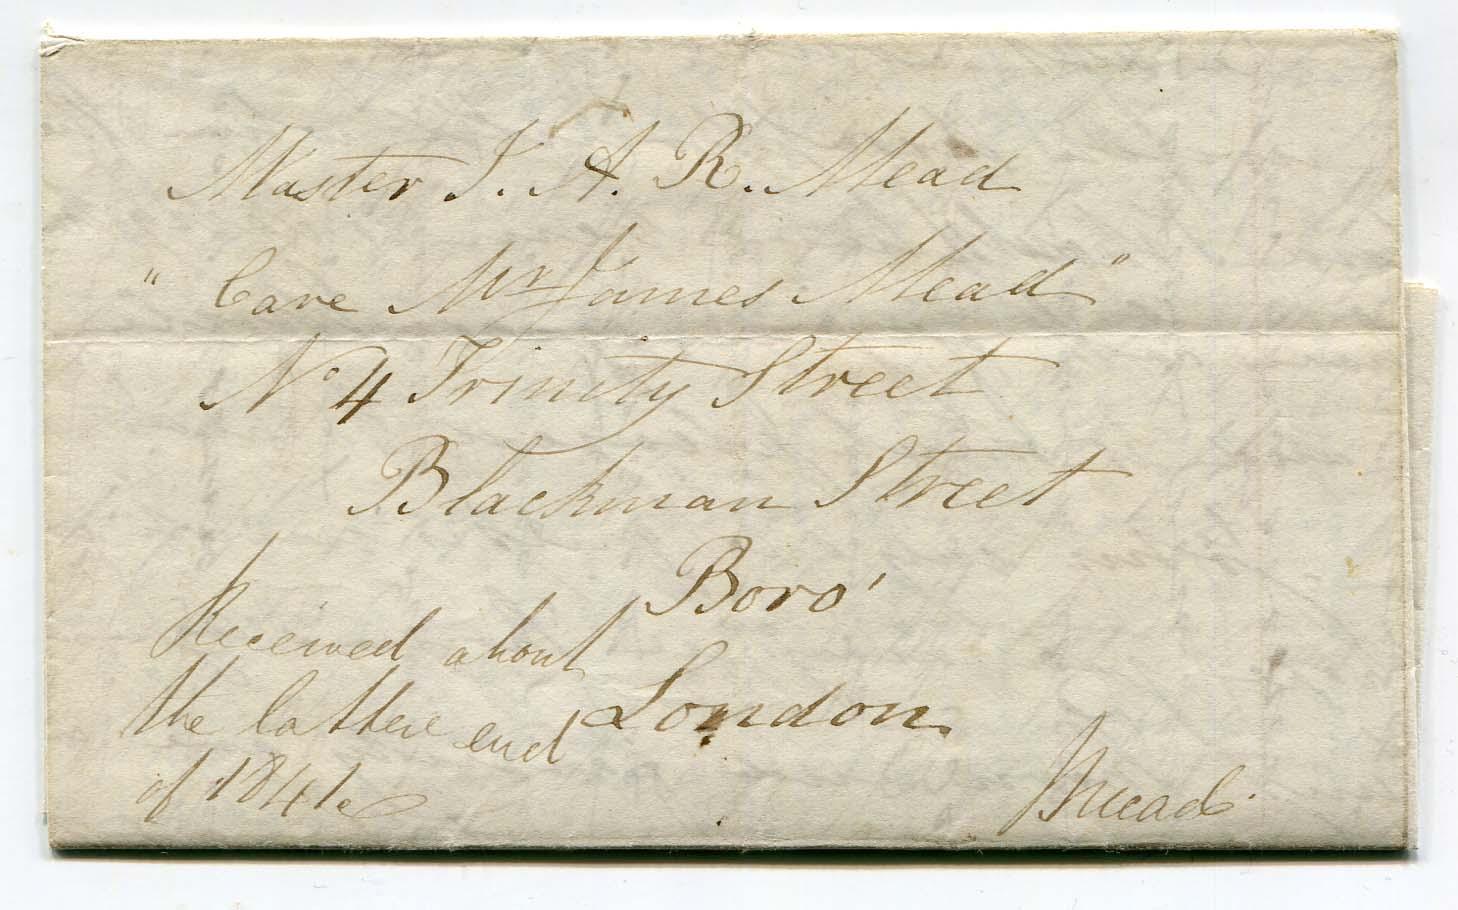 Master J. A. R. Mead
" Care Mr James Mead "
No 4 Trinity Street
Blackman Street
Boro'
London
Received about
the lattere end
of 1841.
J Mead